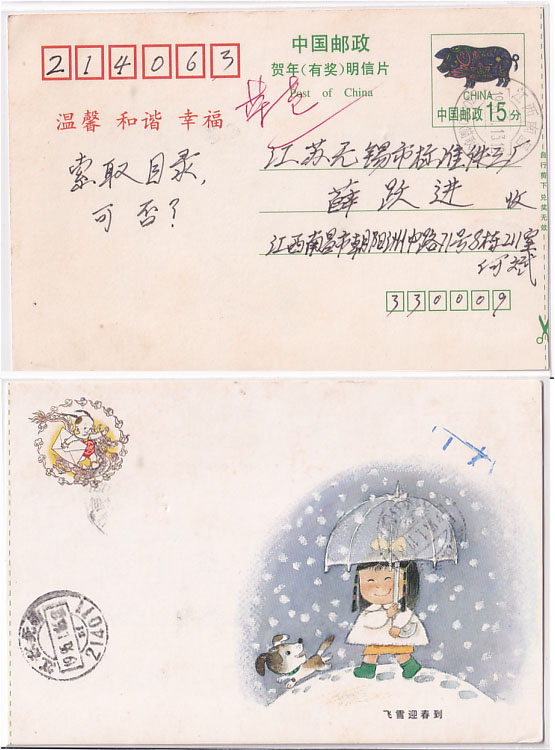 214063
中国邮政
贺年(有奖)明信片
Post of China
CHINA
中国邮政15分
温馨 和谐 幸福
索取目录,
可否?
江苏无锡市标准件三厂
薛跃进 收
江西南昌市朝阳洲中路71号8栋211室
何斌
330009
自行剪下 兑奖无效
飞雪迎春到